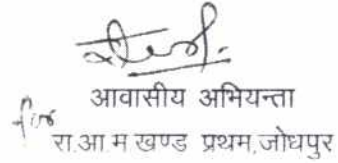 आवासीय अभियन्ता
for
रा.आ.म खण्ड प्रथम,जोधपुर